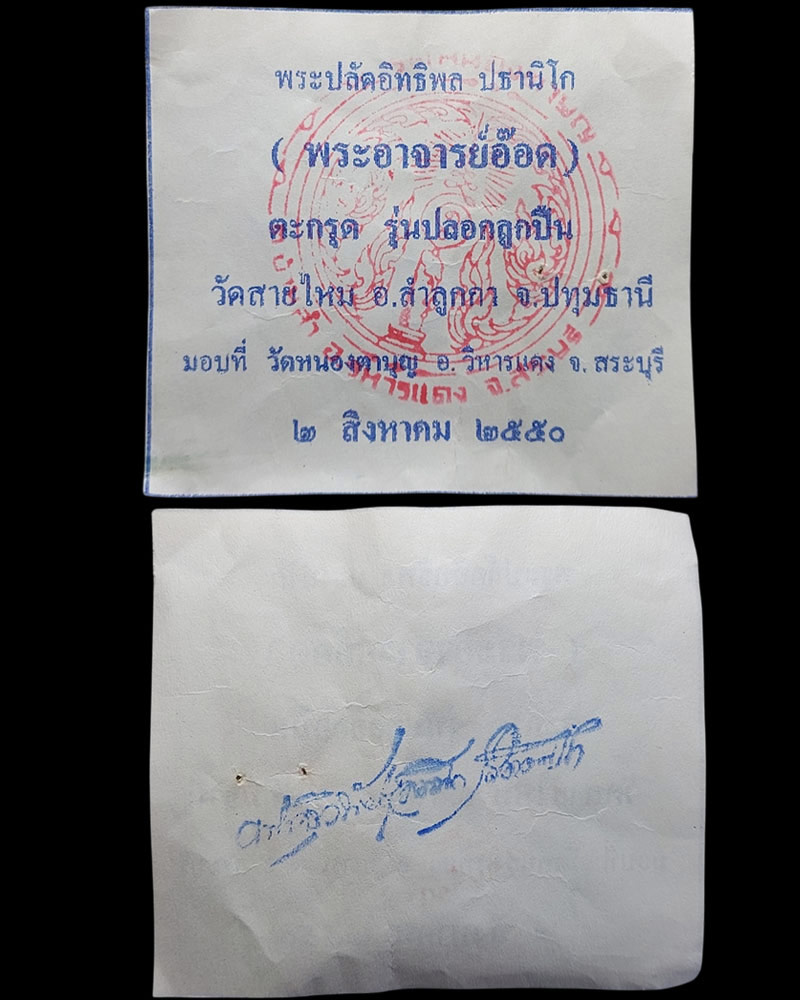 พระปลัดอิทธิพล ปธานิโก
( พระอาจารย์อ๊อด )
ตะกรุด รุ่นปลอกลูกปืน
วัดสายไหม อ.ลำลูกกา จ.ปทุมธานี
มอบที่ วัดหนองตาบุญ อ. วิหารแดง จ. สระบุรี
๒ สิงหาคม ๒๕๕๐
วิหารแดง จ.สระบุรี